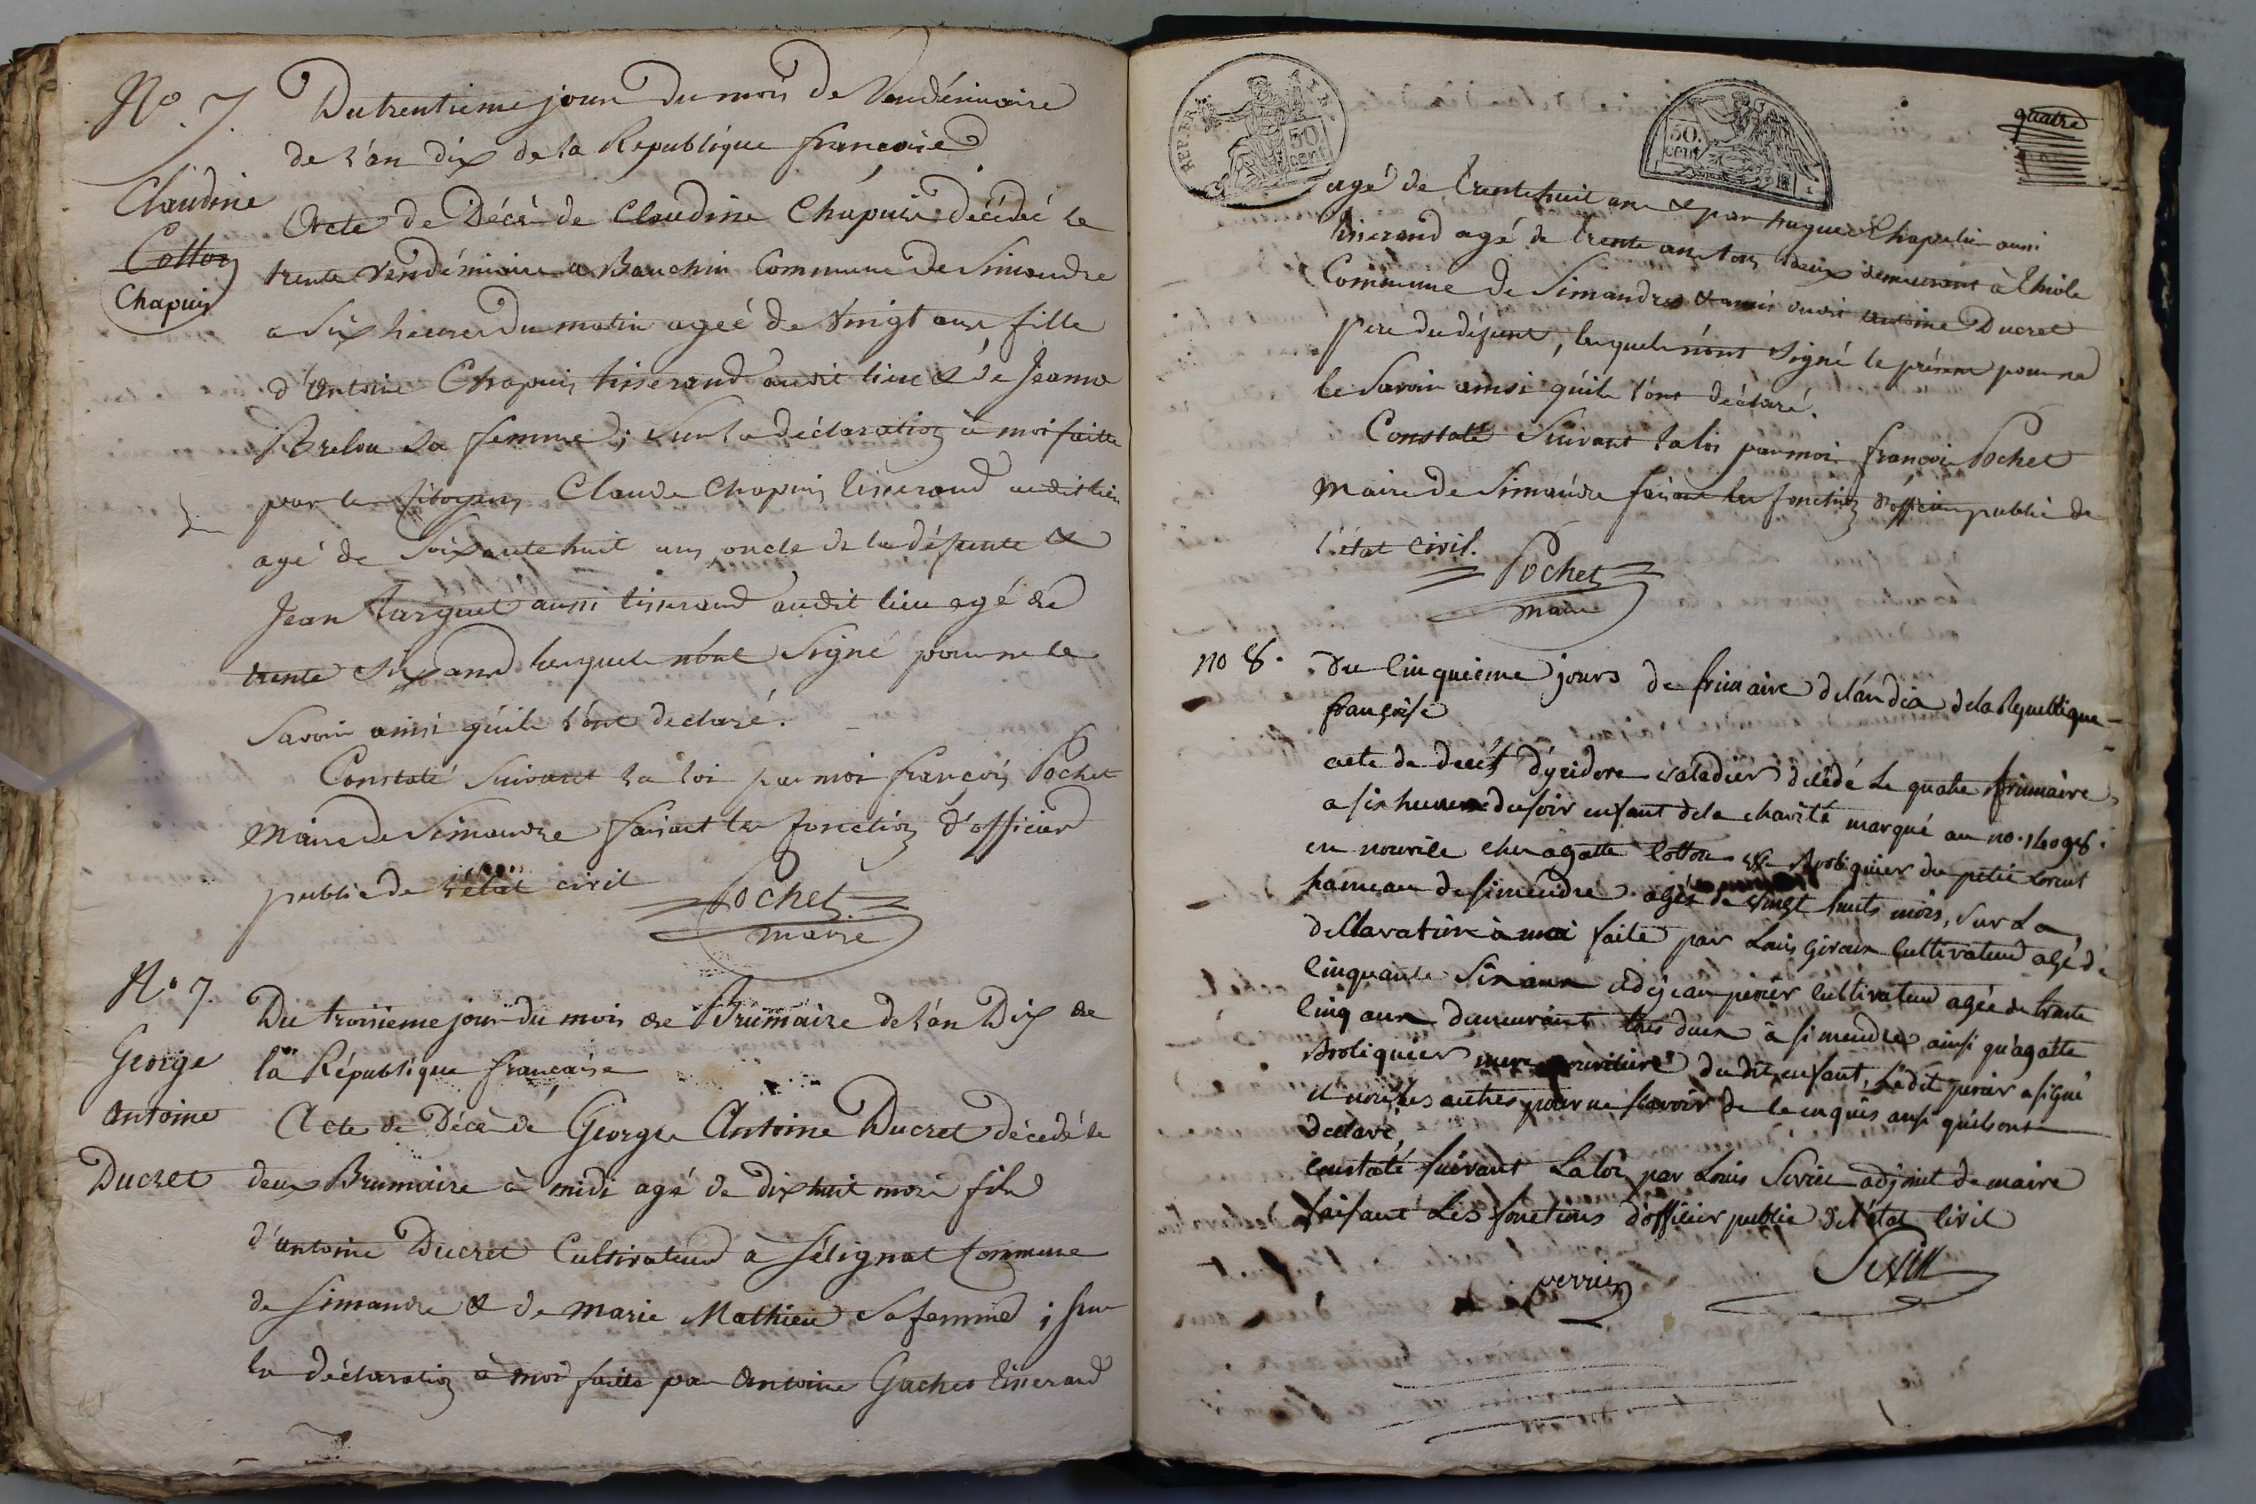 No. 7.
Claudine
Cotton
Chapuis
Du trentieme jour du mois de Vendémiaire
de l'an dix de la Republique françoise
Acte de Décè de Claudine Chapuis décédé le
trente Vendémiaire a Bauchin Commune de Simandre
a Six heures du matin ageé de Vingt ans fille
d'Antoine Chapuis tisserand audit lieu & de Jeanne
Brelou sa femme ; sur la déclaration à moi faitte
par le Citoyen Claude Chapuis tisserand audit lieu
agé de Soixante huit ans oncle de la défunte &
Jean Farguet aussi tisserand audit lieu agé de
trente Six ans lesquels n'ont Signé pour ne le
Savoir ainsi qu'ils l'ont declaré.
Constaté Suivant la loi par moi françois Pochet
Maire de Simandre faisant les fonction d'officier
public de l'état civil
Pochet
maire
No 7.
George
Antoine
Ducret
Du troisieme jour du mois de Brumaire de l'an Dix de
la République française
Acte de Décè de George Antoine Ducret décedé le
deux Brumaire à midi agé de dix huit mois fils
d'Antoine Ducret Cultivateur à Sélignat Commune
de Simandre & de Marie Mathieu Sa femme ; Sur
la déclaration à moi faitte par Antoine Gachet tisserand
REP. FRA
50 cent
50. cent
quatre
agé de trente huit ans & par hugue Chapelu aussi
tisserand agé de trente ans tous deux demeurant à Thiole
Commune de Simandre & aussi Antoine Ducret
pere du défunt, lesquels n'ont Signé le présent pour ne
le Savoir ainsi qu'ils l'ont déclaré.
Constaté Suivant la loi par moi françois Pochet
Maire de Simandre faisant les fonction d'officier public de
l'état civil.
Pochet
maire
no 8.
du Cinquieme jours de frimaire de l'an dix de la Republique
françoise
acte de decés d'ysidore valadier décédé Le quatre frimaire
a six heures du soir enfant de la charité marqué au no.
en nourice chez agatte Cotton Broliquier du petit Corent
hameau de simandre agés de vingt huits mois, sur La
déClaration à moi faite par Louis Giroux Cultivateur agé de
Cinquante Six ans & de jean perier Cultivateur agée de trante
Cinq ans demeurant tous deux à simendre, ainsi qu'agatte
Broliquier mere nouriciere du dit enfant, Ledit perier a signé
et non les autres pour ne savoir de le enquis ansi quils ont
declaré,
Constaté suivant La Loi, par Louis Sevin adjoint de maire
faisant Les fonctions d'officier public de l'état Civil
perrier
Sevin